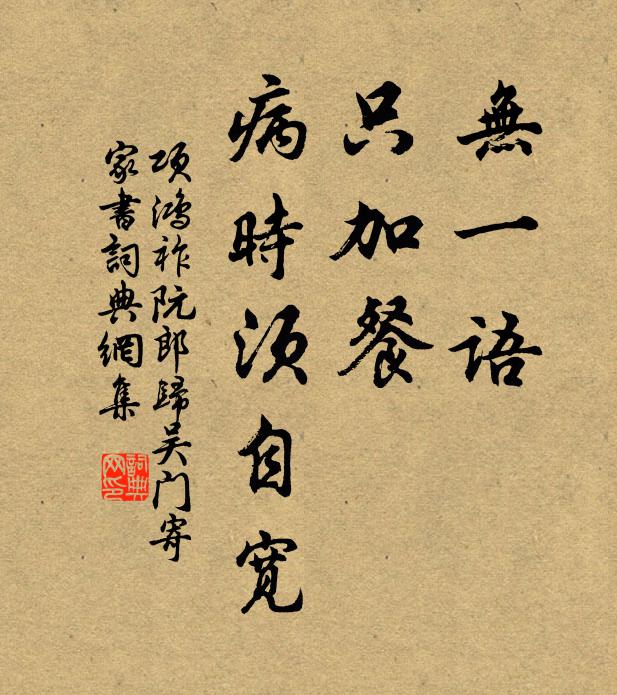 無一語
只加餐
病時須自寬
項鴻祚阮郎歸吴门寄
家書詞典網集
詞典
网印